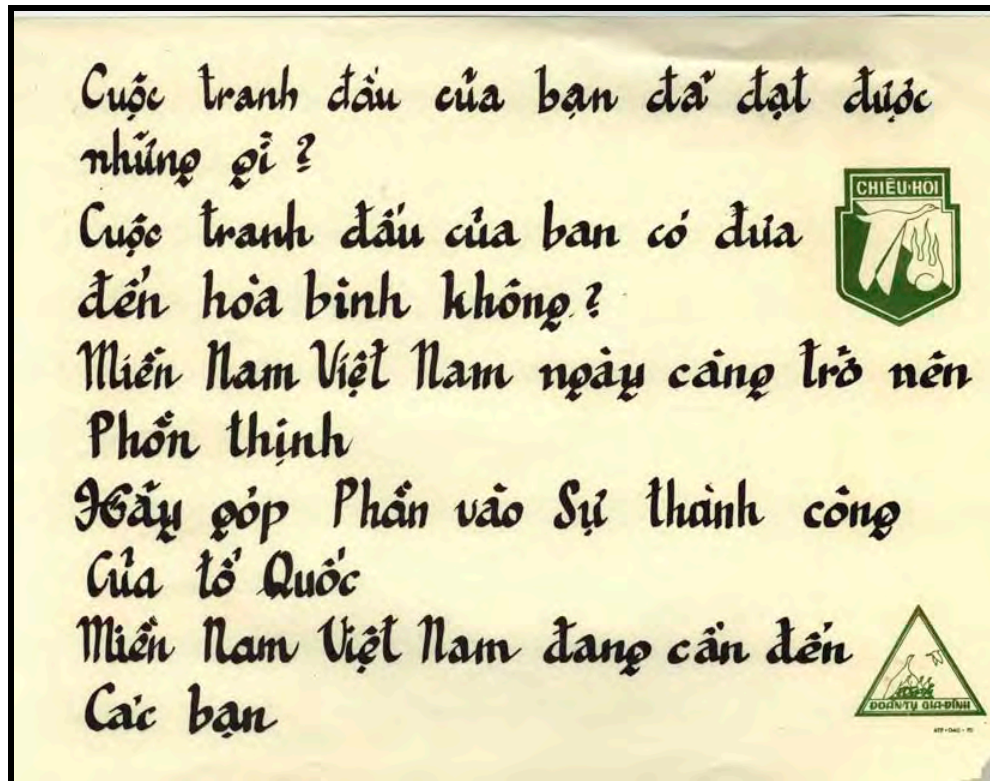 Cuộc tranh đấu của bạn đã đạt được
những gì ?
CHIÊU-HỒI
Cuộc tranh đấu của bạn có đưa
đến hòa bình không ?
Miền Nam Việt Nam ngày càng trở nên
Phồn thịnh
Hãy góp Phần vào Sự thành công
Của tổ Quốc
Miền Nam Việt Nam đang cần đến
Các bạn
ĐOÀN-TỤ GIA-ĐÌNH